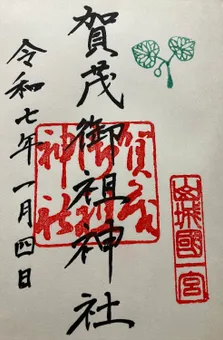 山城國一宮
賀茂御祖神社
賀茂御祖神社
令和七年一月四日